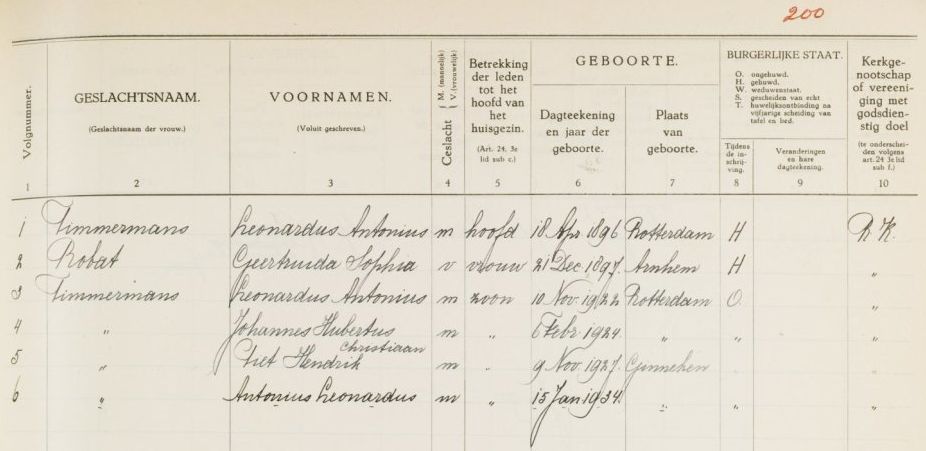 200
Volgnummer.
GESLACHTSNAAM.
(Geslachtsnaam der vrouw.)
VOORNAMEN.
(Voluit geschreven.)
Geslacht { M. (mannelijk) V. (vrouwelijk)
Betrekking
der leden
tot het
hoofd van
het
huisgezin.
(Art. 24, 3e
lid sub c.)
GEBOORTE.
Dagteekening
en jaar der
geboorte.
Plaats
van
geboorte.
BURGERLIJKE STAAT.
O. ongehuwd.
H. gehuwd.
W. weduwenstaat.
S. gescheiden van echt
T. huwelijksontbinding na
vijfjarige scheiding van
tafel en bed.
Tijdens
de in-
schrij-
ving.
Veranderingen
en hare
dagteekening.
Kerkge-
nootschap
of vereeni-
ging met
godsdien-
stig doel
(te onderschei-
den volgens
art. 24 3e lid
sub f.)
1 2 3 4 5 6 7 8 9 10
1 Timmermans Leonardus Antonius m hoofd 18 Apr 1896 Rotterdam H R.K.
2 Robat Geertruida Sophia v vrouw 21 Dec 1897. Arnhem H "
3 Timmermans Leonardus Antonius m zoon 10 Nov. 1922 Rotterdam O. "
4 " Johannes Hubertus m " 6 Febr. 1924. " " "
Christiaan
5 " Piet Hendrik m " 9 Nov. 1927. Ginneken "
6 " Antonius Leonardus m " 15 Jan 1934. " " "